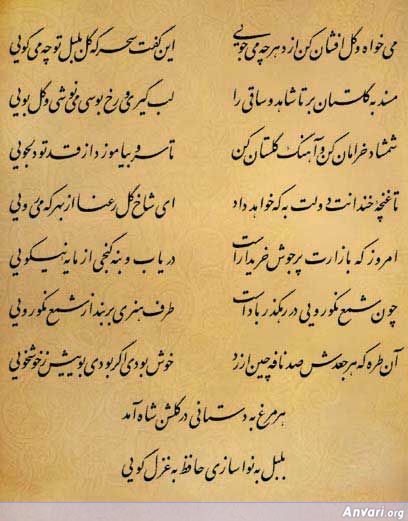 می خواه و گل افشان کن از دهر چه می جویی این گفت سحرگه گل بلبل تو چه می گویی
مسند به گلستان بر تا شاهد و ساقی را لب گیری و رخ بوسی می نوشی و گل بویی
شمشاد خرامان کن و آهنگ گلستان کن تا سرو بیاموزد از قد تو دلجویی
تا غنچه خندانت دولت به که خواهد داد ای شاخ گل رعنا از بهر که می رویی
امروز که بازارت پرجوش خریدار است دریاب و بنه گنجی از مایه نیکویی
چون شمع نکورویی در رهگذر باد است طرف هنری بربند از شمع نکورویی
آن طره که هر جعدش صد نافه چین ارزد خوش بودی اگر بودی بوییش ز خوشخویی
هر مرغ به دستانی در گلشن شاه آمد
بلبل به نواسازی حافظ به غزل گویی
Anvari.org